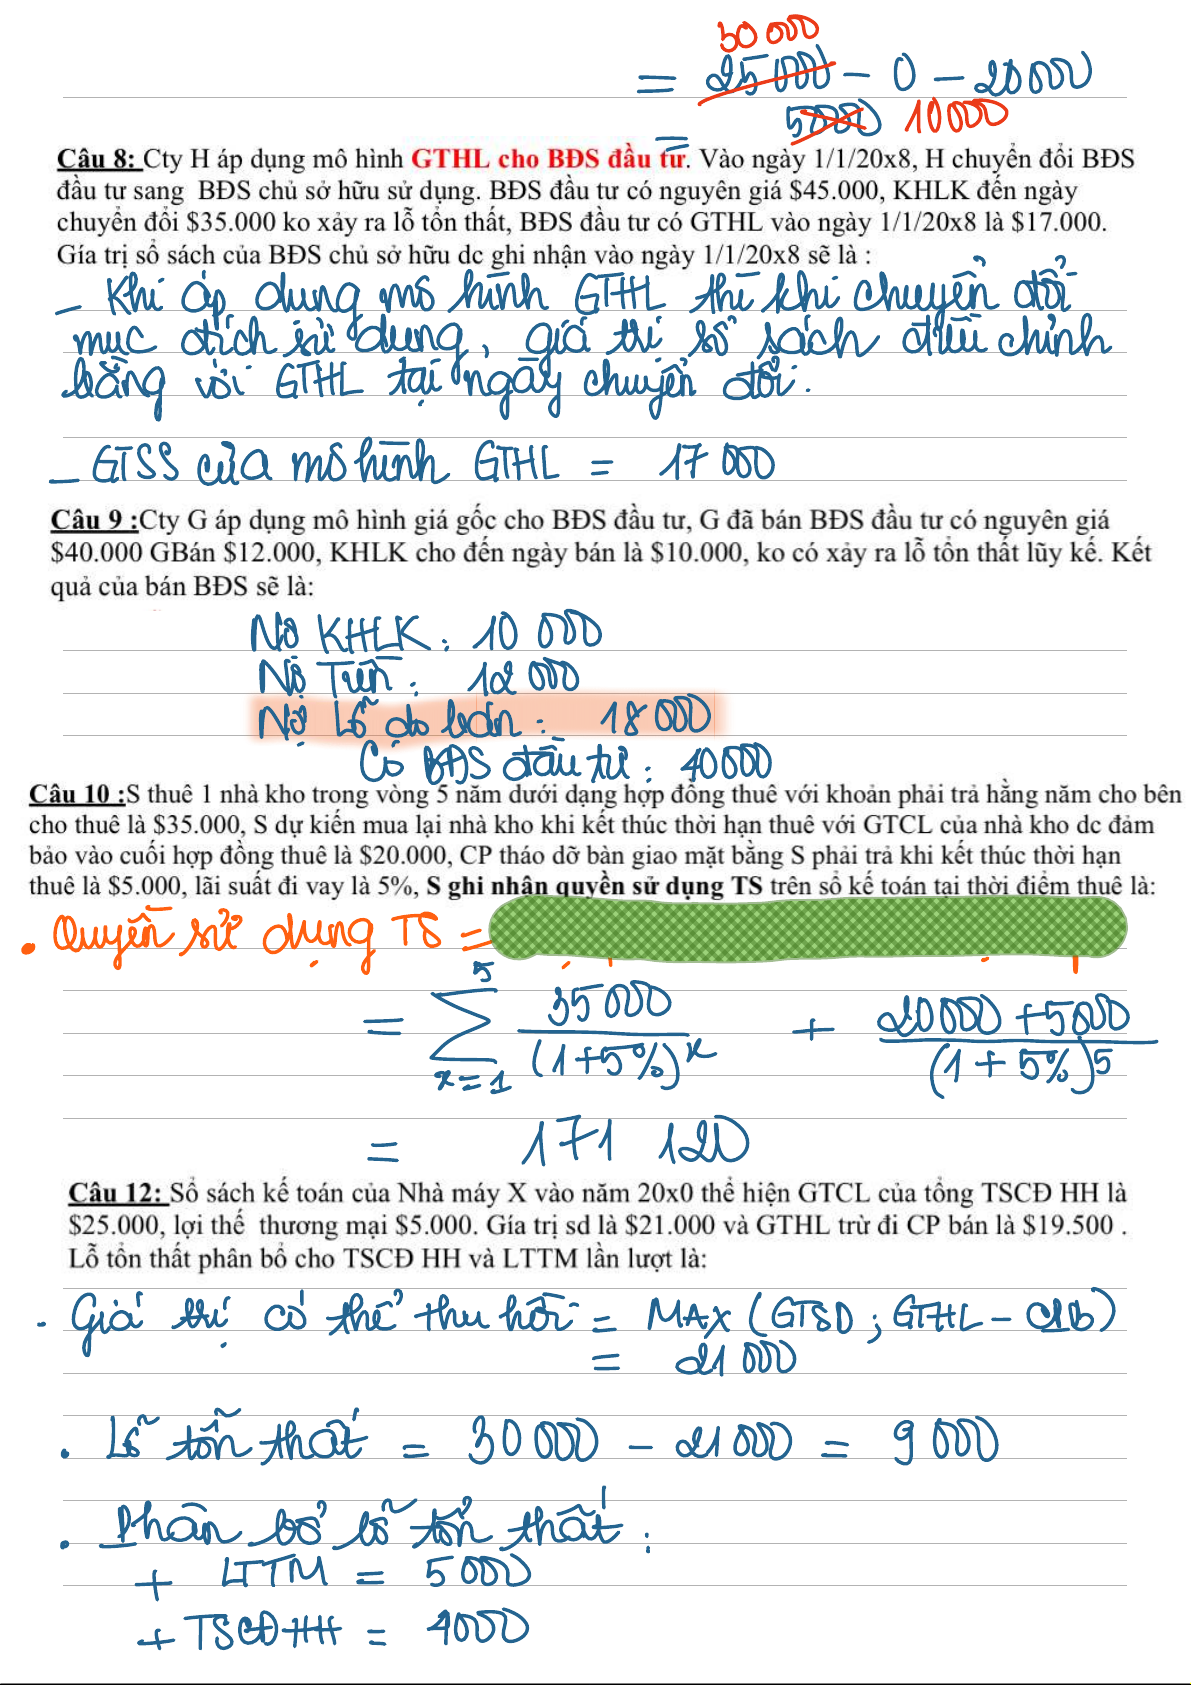 30 000
= 25 000 - 0 - 20 000
= 5000 10 000
Câu 8: Cty H áp dụng mô hình GTHL cho BĐS đầu tư. Vào ngày 1/1/20x8, H chuyển đổi BĐS
đầu tư sang BĐS chủ sở hữu sử dụng. BĐS đầu tư có nguyên giá $45.000, KHLK đến ngày
chuyển đổi $35.000 ko xảy ra lỗ tổn thất, BĐS đầu tư có GTHL vào ngày 1/1/20x8 là $17.000.
Gía trị sổ sách của BĐS chủ sở hữu dc ghi nhận vào ngày 1/1/20x8 sẽ là :
- Khi áp dụng mô hình GTHL thì khi chuyển đổi
mục đích sử dụng, giá trị sổ sách điều chỉnh
bằng với GTHL tại ngày chuyển đổi.
- GTSS của mô hình GTHL = 17 000
Câu 9 :Cty G áp dụng mô hình giá gốc cho BĐS đầu tư, G đã bán BĐS đầu tư có nguyên giá
$40.000 GBán $12.000, KHLK cho đến ngày bán là $10.000, ko có xảy ra lỗ tổn thất lũy kế. Kết
quả của bán BĐS sẽ là:
Nợ KHLK : 10 000
Nợ Tiền : 12 000
Nợ Lỗ do bán : 18 000
Có BĐS đầu tư : 40 000
Câu 10 :S thuê 1 nhà kho trong vòng 5 năm dưới dạng hợp đồng thuê với khoản phải trả hằng năm cho bên
cho thuê là $35.000, S dự kiến mua lại nhà kho khi kết thúc thời hạn thuê với GTCL của nhà kho dc đảm
bảo vào cuối hợp đồng thuê là $20.000, CP tháo dỡ bàn giao mặt bằng S phải trả khi kết thúc thời hạn
thuê là $5.000, lãi suất đi vay là 5%, S ghi nhận quyền sử dụng TS trên sổ kế toán tại thời điểm thuê là:
. Quyền sử dụng TS =
= 5 ∑ x=1 35 000 / (1+5%)^x + 20 000 + 5 000 / (1 + 5%)^5
= 171 120
Câu 12: Sổ sách kế toán của Nhà máy X vào năm 20x0 thể hiện GTCL của tổng TSCĐ HH là
$25.000, lợi thế thương mại $5.000. Gía trị sd là $21.000 và GTHL trừ đi CP bán là $19.500 .
Lỗ tổn thất phân bổ cho TSCĐ HH và LTTM lần lượt là:
- Giá trị có thể thu hồi = MAX (GTSD ; GTHL - CPb)
= 21 000
. Lỗ tổn thất = 30 000 - 21 000 = 9 000
. Phân bổ lỗ tổn thất :
+ LTTM = 5 000
+ TSCĐHH = 4000